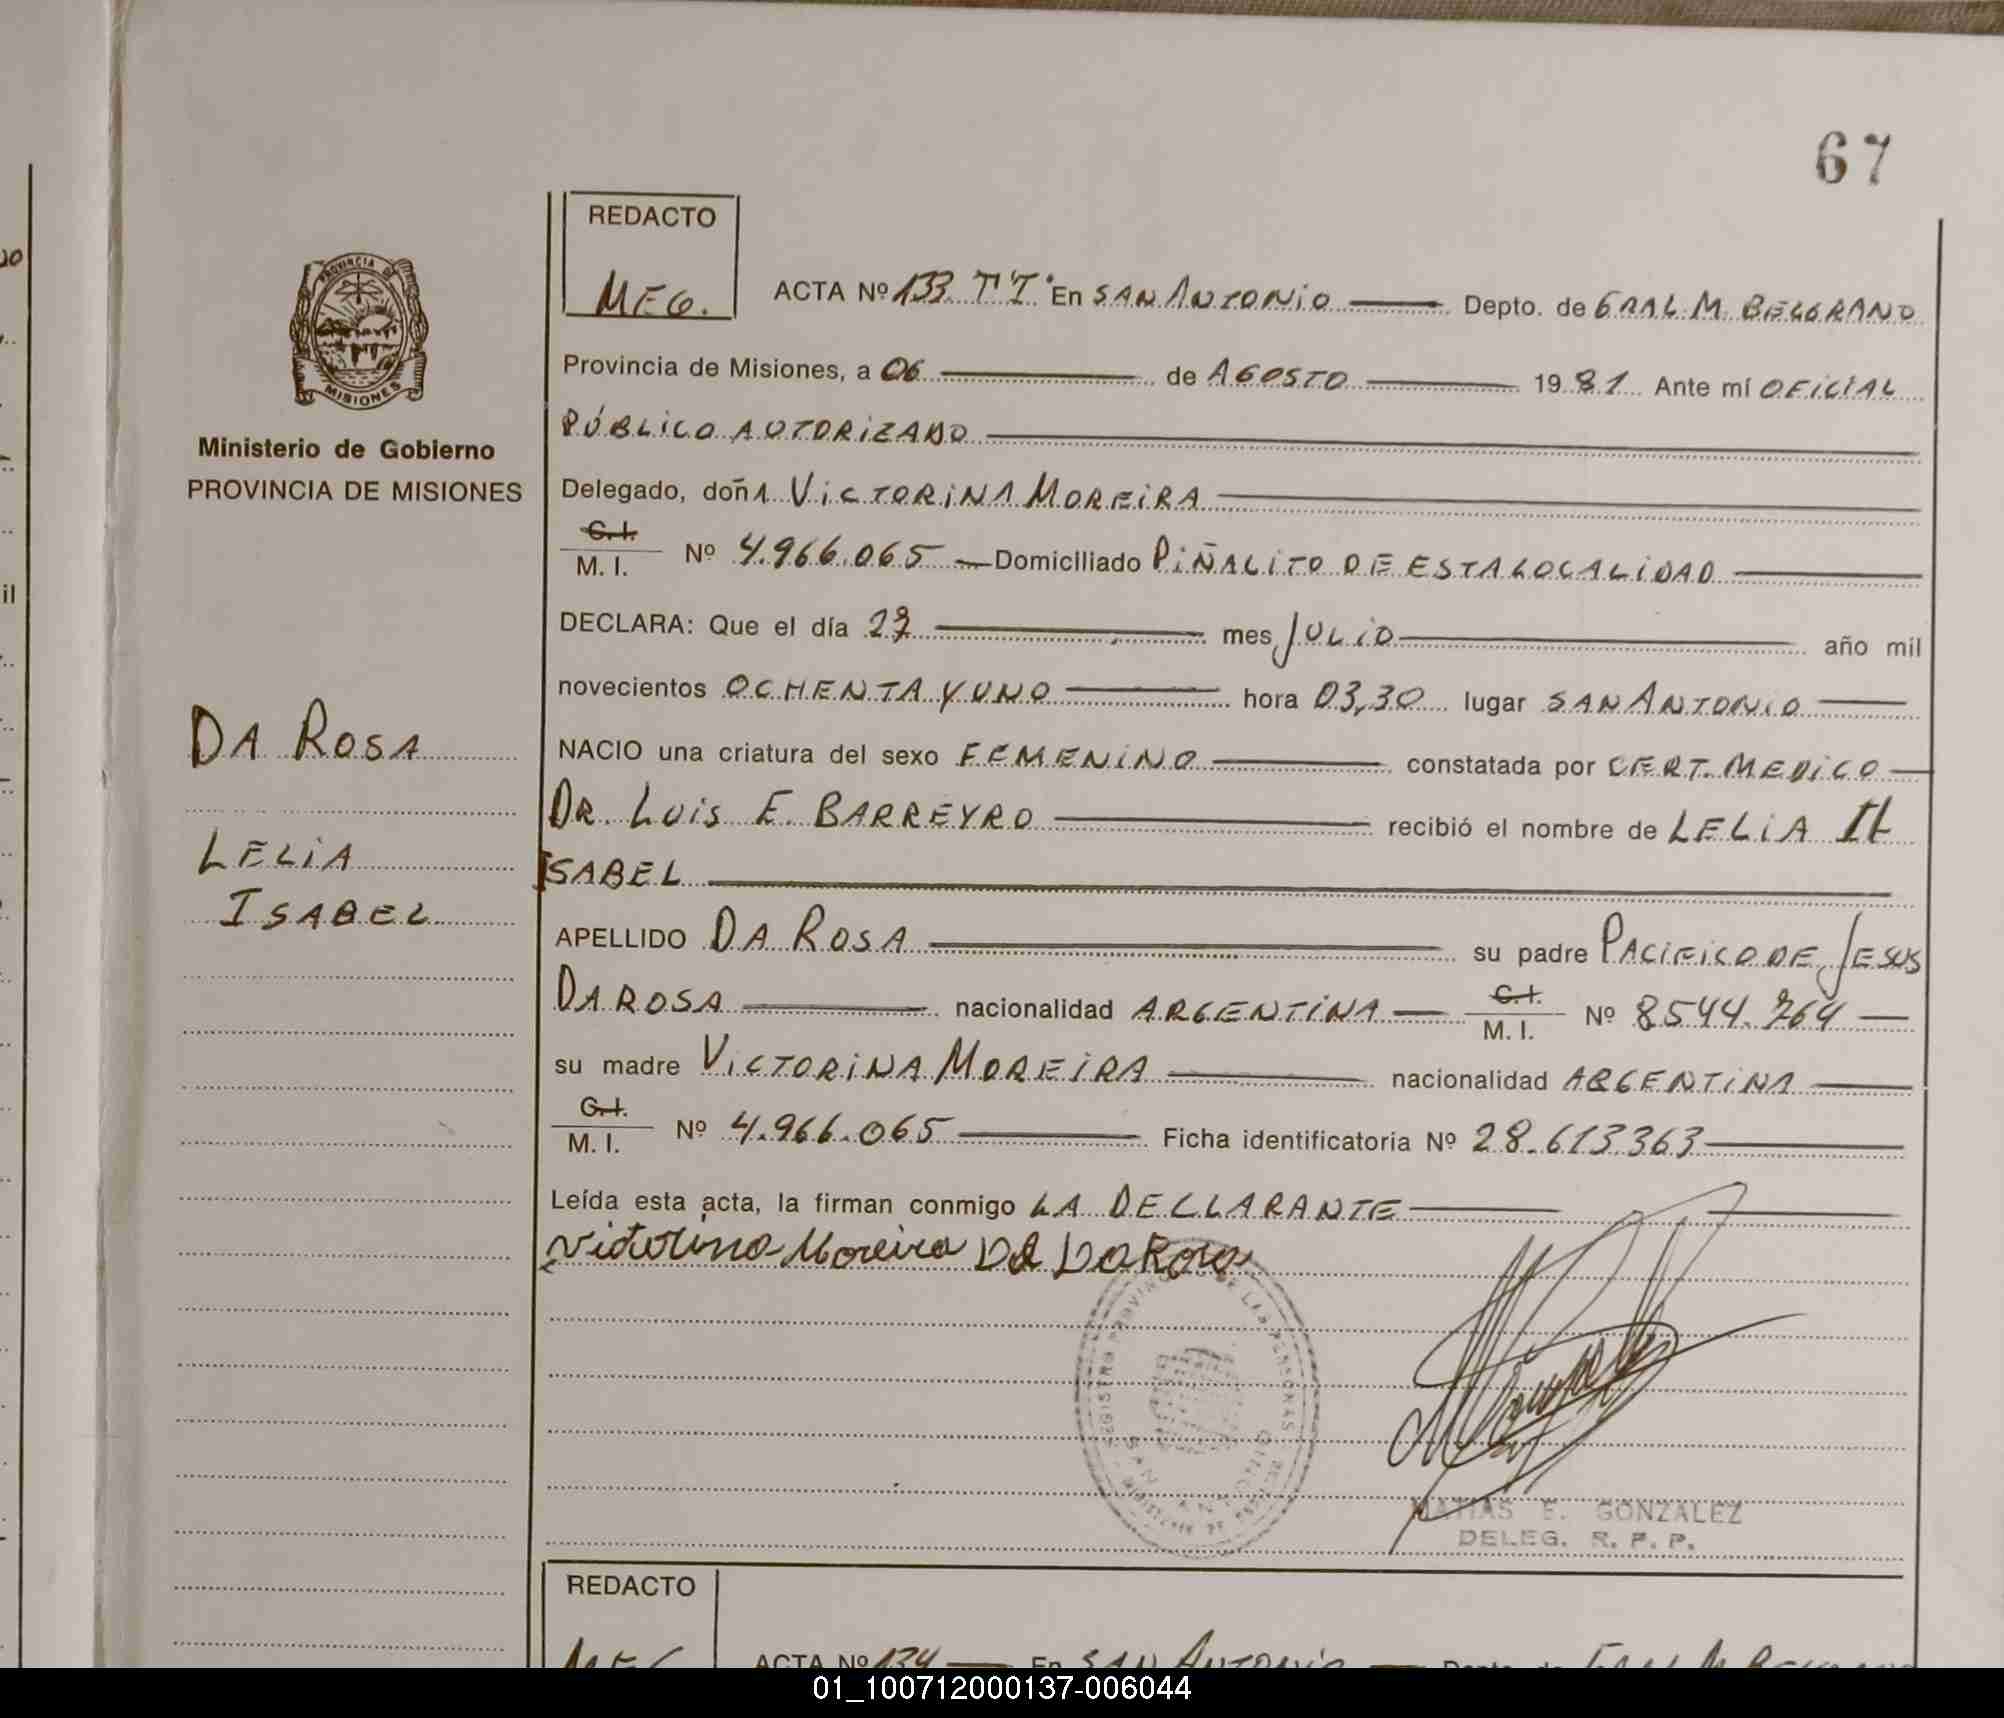 67
REDACTO
MEG.
PROVINCIA DE
MISIONES
Ministerio de Gobierno
PROVINCIA DE MISIONES
ACTA Nº 133 T I° En SAN ANTONIO Depto. de GRAL M. BELGRANO
Provincia de Misiones, a 06 de AGOSTO 1981 Ante mí OFICIAL
PÚBLICO AUTORIZADO
Delegado, doñA VICTORINA MOREIRA
C. I.
M. I. Nº 4.966.065 Domiciliado PIÑALITO DE ESTA LOCALIDAD
DECLARA: Que el día 27 mes JULIO año mil
novecientos OCHENTA Y UNO hora 03,30 lugar SAN ANTONIO
NACIO una criatura del sexo FEMENINO constatada por CERT. MEDICO
DR. LUIS E. BARREYRO recibió el nombre de LELIA
ISABEL
APELLIDO DA ROSA su padre PACIFICO DE JESUS
DA ROSA nacionalidad ARGENTINA C. I.
M. I. Nº 8544.764
su madre VICTORINA MOREIRA nacionalidad ARGENTINA
C. I.
M. I. Nº 4.966.065 Ficha identificatoria Nº 28.613363
Leída esta acta, la firman conmigo LA DECLARANTE
Victorina Moreira De Da Rosa
DA ROSA
LELIA
ISABEL
REGISTRO PROVINCIAL DE LAS PERSONAS
SAN ANTONIO
MATIAS E. GONZALEZ
DELEG. R. P. P.
REDACTO
MEG
ACTA Nº 134 En SAN ANTONIO Depto. de GRAL M. BELGRANO
il
01_100712000137-006044